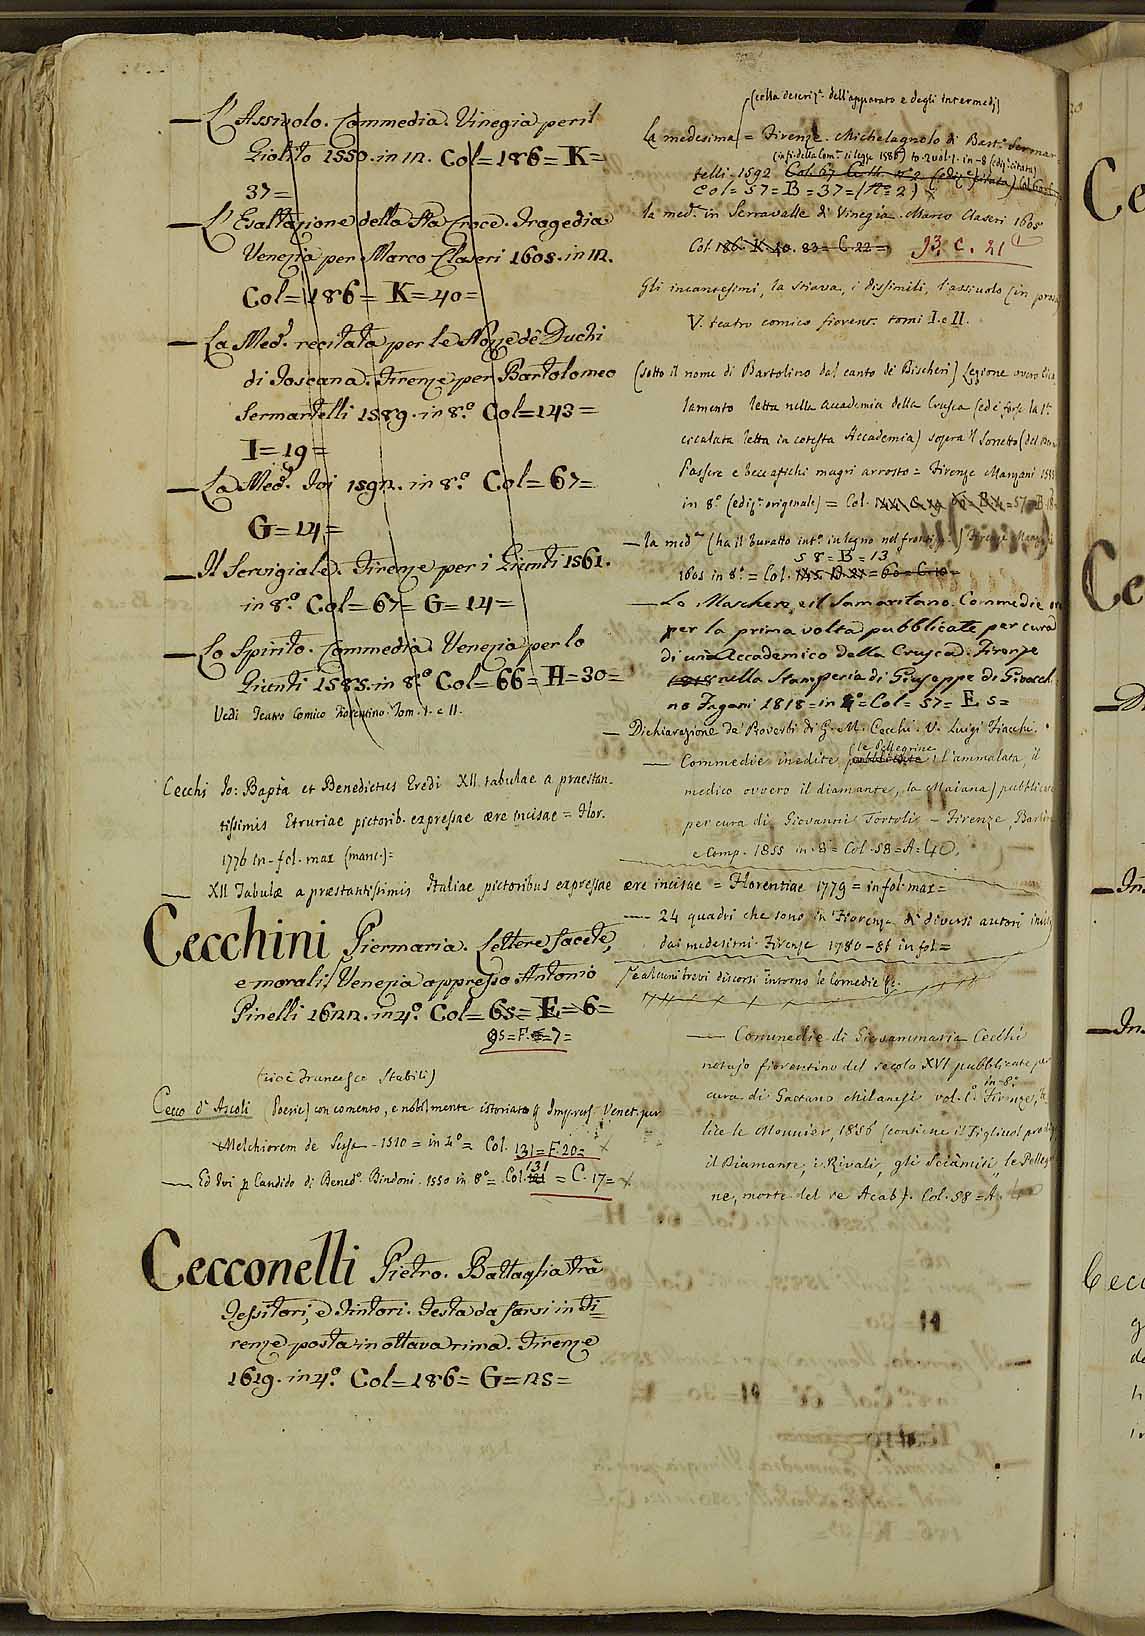 — L'Assivolo. Commedia. Vinegia per il
Giolito 1550. in 12. Col = 186 = K =
37 =
— L'Esaltazione della Sta Croce. Tragedia
Venezia per Marco Claseri. 1605. in 12.
Col = 186 = K = 40 =
— La Med.ª recitata per le Nozze de' Duchi
di Toscana. Firenze per Bartolomeo
Sermartelli 1589. in 8.º Col = 143 =
I = 19 =
— La Med.ª Ivi 1592. in 8.º Col = 67 =
G = 14 =
— Il Servigiale. Firenze per i Giunti 1561.
in 8.º Col = 67 = G = 14 =
— Lo Spirito. Commedia. Venezia per lo
Giunti 1585. in 8.º Col = 66 = H = 30 =
Vedi Teatro Comico Fiorentino. Tom. I. e II.
Cecchi Jo: Bapta et Benedictus Eredi XII. tabulae a praestan-
tissimis Etruriae pictorib. expressae ære incisae = Flor.
1776 in-fol. max (manc.) =
— XII Tabulæ a præstantissimis Italiae pictoribus expressae ære incisae = Florentiae 1779 = in fol. max =
Cecchini Piermaria. Lettere facete,
e morali / Venezia appresso Antonio
Pinelli 1622. in 4.º Col = 65 = E = 6 =
95 = F. = 7 =
(cioè Francesco Stabili)
Cecco d'Ascoli (Poesie) con comento, e nobilmente istoriato Impress. Venet. per
Melchiorem de Sessa - 1510 = in 4º = Col. 131 = F. 20 =
— Ed Ivi p Candido di Bened.º Bindoni. 1550 in 8º = Col. 131 = C. 17 =
Cecconelli Pietro. Battaglia trà
Tessitori, e Tintori. Testa da farsi in Fi=
renze posta in ottava rima. Firenze
1619. in 4.º Col = 186 = G = 25 =
(colla descriz.e dell'apparato e degli intermedj)
la medesima = Firenze. Michelagnolo di Bart.º Sermar
(in fi. della Com.ª si legge 1586) to. 2 vol. 1. in-8 (ediz. citata)
telli. 1592
Col = 57 = B = 37 = (N.º 2)
la med.ª in Serravalle di Vinegia. Marco Claseri 1605
Col. 186. K. 40. 83 = C. 22 = 93. C. 21
Gli incantesimi, la stiava, i dissimili, l'assivolo (in prosa
V. teatro comico fiorent. tomi I. e II.
(sotto il nome di Bartolino dal canto de' Bischeri) Lezione ovvero Cica
lamento letta nella Accademia della Crusca (ed è forse la 1.ª
cicalata letta in cotesta Accademia) sopra 'l Sonetto (del
Passere e beccafichi magri arrosto = Firenze Manzani 1583
in 8.º (ediz.e originale) = Col.
— la med.ª (ha il buratto int.º in legno nel frontis.
58 = B = 13
1605 in 8.º = Col.
— Le Maschere, e il Samaritano. Commedie
per la prima volta pubblicate per cura
di un Accademico della Crusca. Firenze
1818 nella Stamperia di Giuseppe di Giovacchi
no Pagani 1818 = in 4º = Col = 57 = E 5 =
— Dichiarazione de' Proverbi di G. M. Cecchi. V. Luigi Fiacchi.
(le Pellegrine
— Commedie inedite pubblicate l'ammalata, il
medico ovvero il diamante, la Majana) pubblicate
per cura di Giovanni Tortoli - Firenze, Barbèra
e Comp. 1855 in-8º = Col. 58 = A = 40.
— 24 quadri che sono in Fiorenza di diversi autori
dai medesimi Firenze 1780-86 in fol =
e alcuni brevi discorsi intorno le Comedie
— Commedie di Giovanmaria Cecchi
notajo fiorentino del secolo XVI pubblicate per
cura di Gaetano Milanesi vol. 1.º in-8º Firenze,
lice le Monnier, 1856 (contiene il Figliuol prodigo
il Diamante, i Rivali, gli Sciamiti, le Pellegri
ne, morte del re Acab). Col. 58 = A.